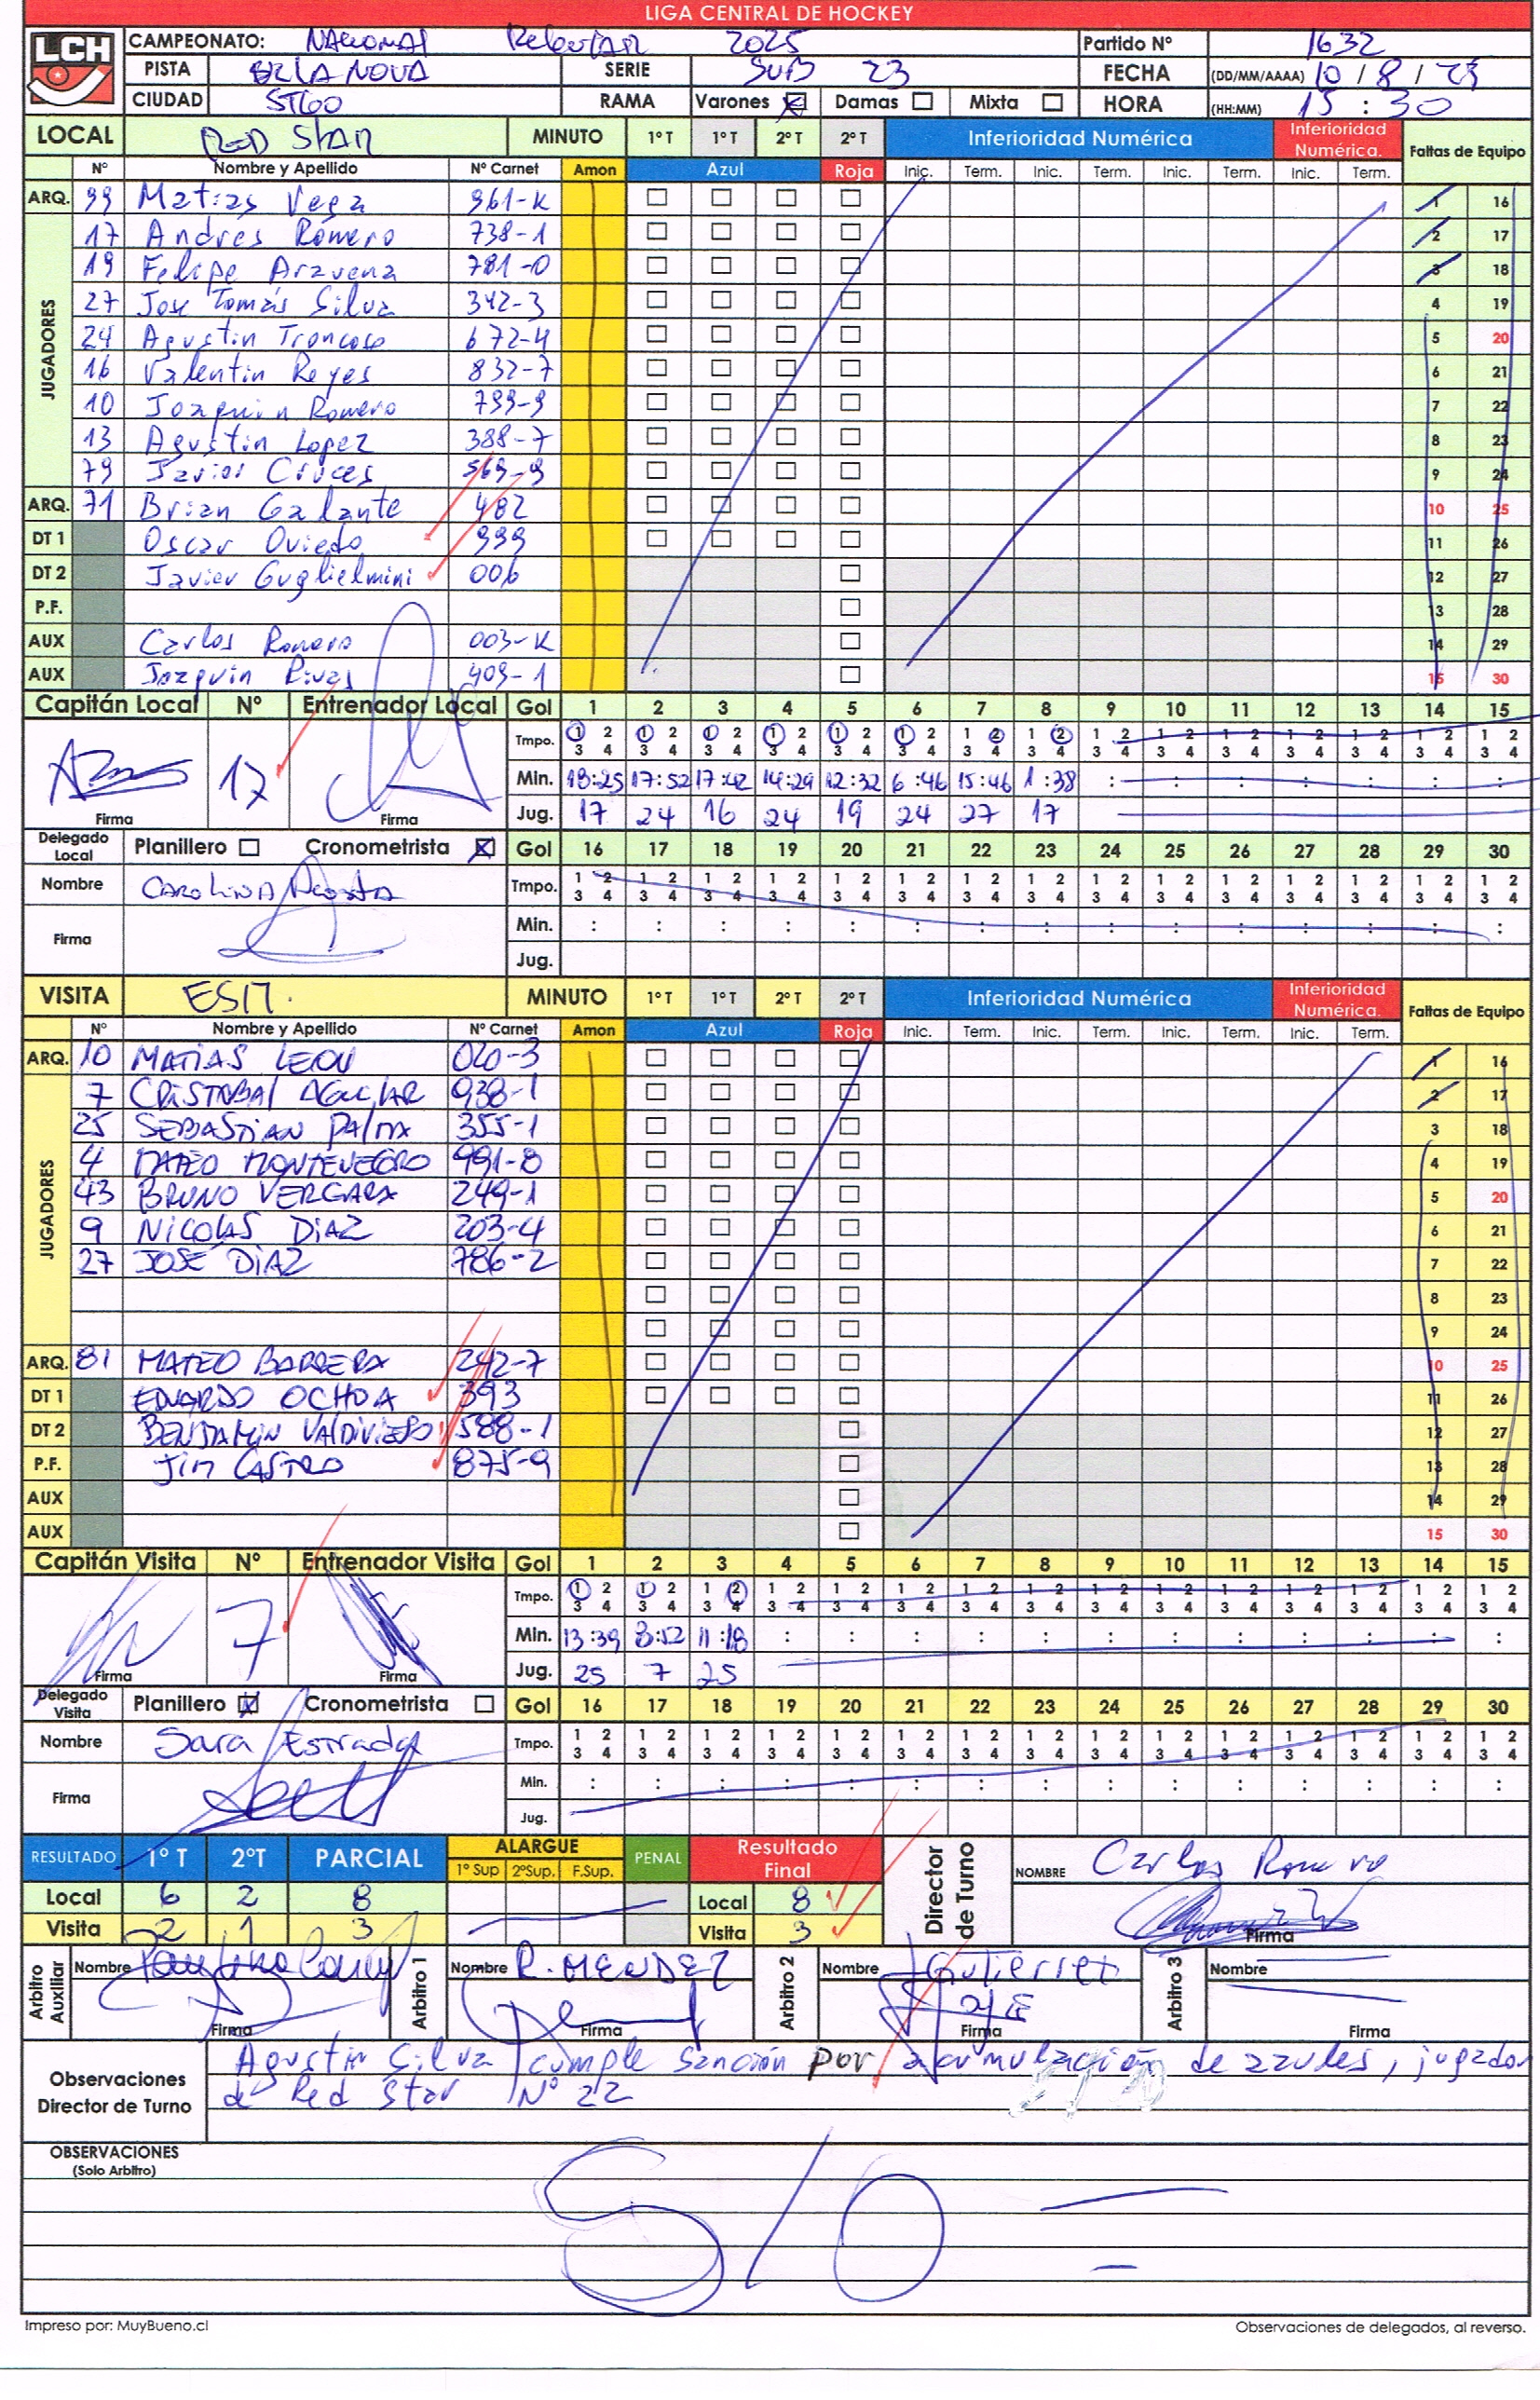 LIGA CENTRAL DE HOCKEY
LCH CAMPEONATO: NACIONAL Regular 2025 Partido Nº 1632
PISTA BELLA NOVA SERIE SUB 23 FECHA (DD/MM/AAAA) 10 / 8 / 25
CIUDAD STGO RAMA Varones Damas Mixta HORA (HH:MM) 15 : 30
LOCAL RED STAR MINUTO 1º T 1º T 2º T 2º T Inferioridad Numérica Inferioridad Numérica. Faltas de Equipo
Nº Nombre y Apellido Nº Carnet Amon Azul Roja Inic. Term. Inic. Term. Inic. Term. Inic. Term.
ARQ. 99 Matias Vega 961-K 1 16
JUGADORES
17 Andres Romero 738-1 2 17
19 Felipe Aravena 781-0 3 18
27 Jose Tomás Silva 342-3 4 19
24 Agustin Troncoso 672-4 5 20
16 Valentin Reyes 832-7 6 21
10 Joaquin Romero 799-9 7 22
13 Agustin Lopez 388-7 8 23
79 Javier Cruces 569-9 9 24
ARQ. 71 Brian Galante 482 10 25
DT 1 Oscar Oviedo 999 11 26
DT 2 Javier Guglielmini 006 12 27
P.F. 13 28
AUX Carlos Romero 003-K 14 29
AUX Joaquin Rivas 409-1 15 30
Capitán Local Nº Entrenador Local Gol 1 2 3 4 5 6 7 8 9 10 11 12 13 14 15
Tmpo. 1 2 3 4 1 2 3 4 1 2 3 4 1 2 3 4 1 2 3 4 1 2 3 4 1 2 3 4 1 2 3 4 1 2 3 4 1 2 3 4 1 2 3 4 1 2 3 4 1 2 3 4 1 2 3 4 1 2 3 4
17 Min. 18:25 17:52 17:42 14:29 12:32 6:46 15:46 1:38 : : : : : : :
Firma Firma Jug. 17 24 16 24 19 24 27 17
Delegado Local Planillero Cronometrista Gol 16 17 18 19 20 21 22 23 24 25 26 27 28 29 30
Nombre CAROLINA Acosta Tmpo. 1 2 3 4 1 2 3 4 1 2 3 4 1 2 3 4 1 2 3 4 1 2 3 4 1 2 3 4 1 2 3 4 1 2 3 4 1 2 3 4 1 2 3 4 1 2 3 4 1 2 3 4 1 2 3 4 1 2 3 4
Firma Min. : : : : : : : : : : : : : : :
Jug.
VISITA ESIT. MINUTO 1º T 1º T 2º T 2º T Inferioridad Numérica Inferioridad Numérica. Faltas de Equipo
Nº Nombre y Apellido Nº Carnet Amon Azul Roja Inic. Term. Inic. Term. Inic. Term. Inic. Term.
ARQ. 10 MATIAS LEON 020-3 1 16
JUGADORES
7 CRISTOBAL AGUILAR 938-1 2 17
25 SEBASTIAN PALMA 355-1 3 18
4 MATEO MONTENEGRO 991-8 4 19
43 BRUNO VERGARA 249-1 5 20
9 NICOLAS DIAZ 203-4 6 21
27 JOSE DIAZ 786-2 7 22
8 23
9 24
ARQ. 81 MATEO BARRERA 242-7 10 25
DT 1 EDUARDO OCHOA 393 11 26
DT 2 BENJAMIN VALDIVIESO 588-1 12 27
P.F. JIM CASTRO 875-9 13 28
AUX 14 29
AUX 15 30
Capitán Visita Nº Entrenador Visita Gol 1 2 3 4 5 6 7 8 9 10 11 12 13 14 15
Tmpo. 1 2 3 4 1 2 3 4 1 2 3 4 1 2 3 4 1 2 3 4 1 2 3 4 1 2 3 4 1 2 3 4 1 2 3 4 1 2 3 4 1 2 3 4 1 2 3 4 1 2 3 4 1 2 3 4 1 2 3 4
7 Min. 13:39 8:52 11:18 : : : : : : : : : : : :
Firma Firma Jug. 25 7 25
Delegado Visita Planillero Cronometrista Gol 16 17 18 19 20 21 22 23 24 25 26 27 28 29 30
Nombre Sara Estrada Tmpo. 1 2 3 4 1 2 3 4 1 2 3 4 1 2 3 4 1 2 3 4 1 2 3 4 1 2 3 4 1 2 3 4 1 2 3 4 1 2 3 4 1 2 3 4 1 2 3 4 1 2 3 4 1 2 3 4 1 2 3 4
Firma Min. : : : : : : : : : : : : : : :
Jug.
RESULTADO 1º T 2ºT PARCIAL ALARGUE 1º Sup 2ºSup. F.Sup. PENAL Resultado Final Director de Turno NOMBRE Carlos Romero
Local 6 2 8 Local 8
Visita 2 1 3 Visita 3 Firma
Arbitro Auxiliar Nombre Arbitro 1 Nombre R. MENDEZ Arbitro 2 Nombre J Gutierrez Arbitro 3 Nombre
Firma Firma Firma Firma
Observaciones Director de Turno
Agustin Silva cumple sanción por acumulación de azules, jugador
de Red Star Nº 22
OBSERVACIONES
(Solo Arbitro)
S/O
Impreso por: MuyBueno.cl Observaciones de delegados, al reverso.